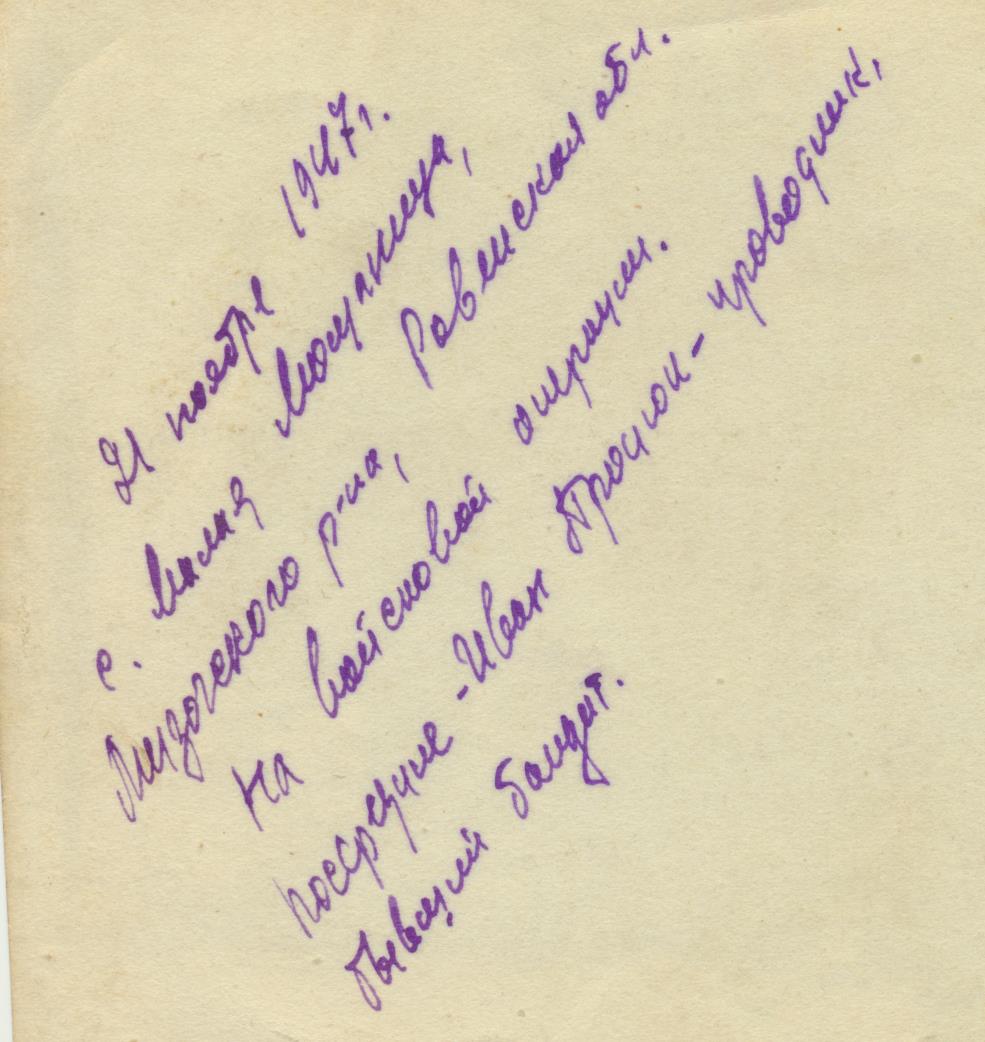 21 ноября 1947г.
с. Малая Мощаница,
Мизочского р-на, Ровенская обл.
На войсковой операции.
посредине - Иван Троцюк - проводник,
бывший бандит.